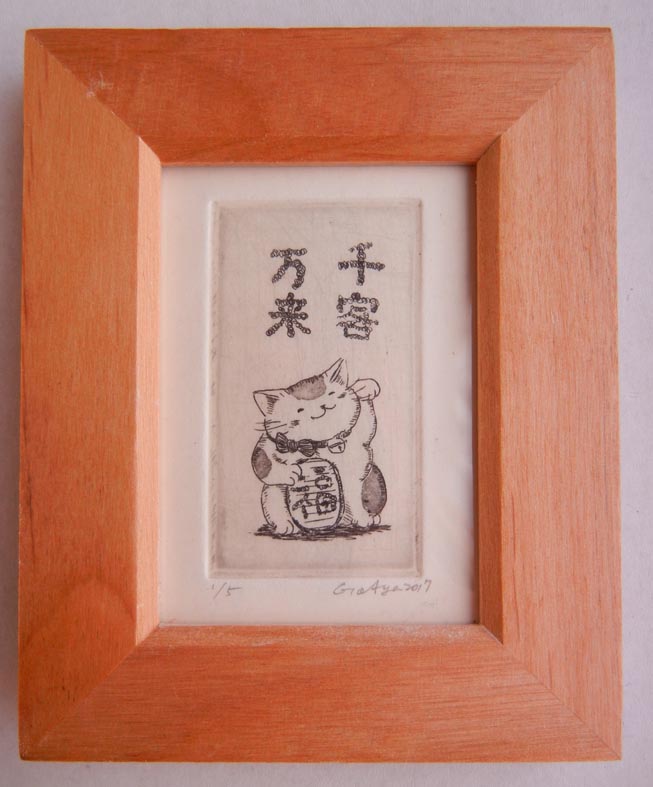 千客
万来
福
1/5
2017